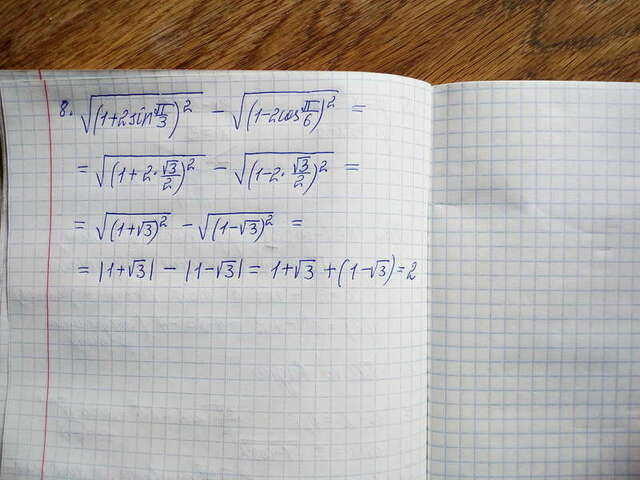 8. √(1+2sin π/3)² − √(1−2cos π/6)² =
= √(1+2·√3/2)² − √(1−2·√3/2)² =
= √(1+√3)² − √(1−√3)² =
= |1+√3| − |1−√3| = 1+√3 + (1−√3) = 2